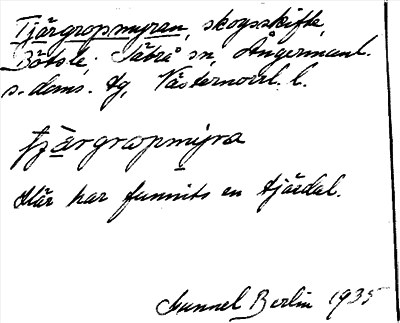 Tjärgropmyran, skogsskifte,
Bölsle, Säbrå sn, Ångermanl.
s. doms. tg, Västernorrl. l.
tjärgropmyra
Här har funnits en tjärdal.
Gunnel Berlin 1935